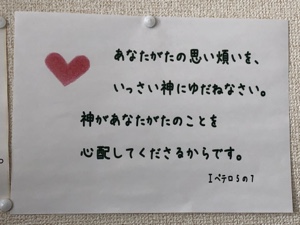 あなたがたの思い煩いを、
いっさい神にゆだねなさい。
神があなたがたのことを
心配してくださるからです。
Iペテロ5の7